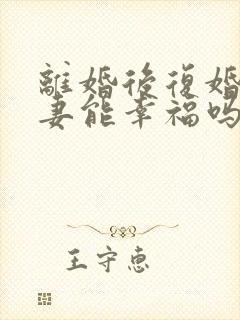 離婚後復婚
妻能幸福吗
王守惠